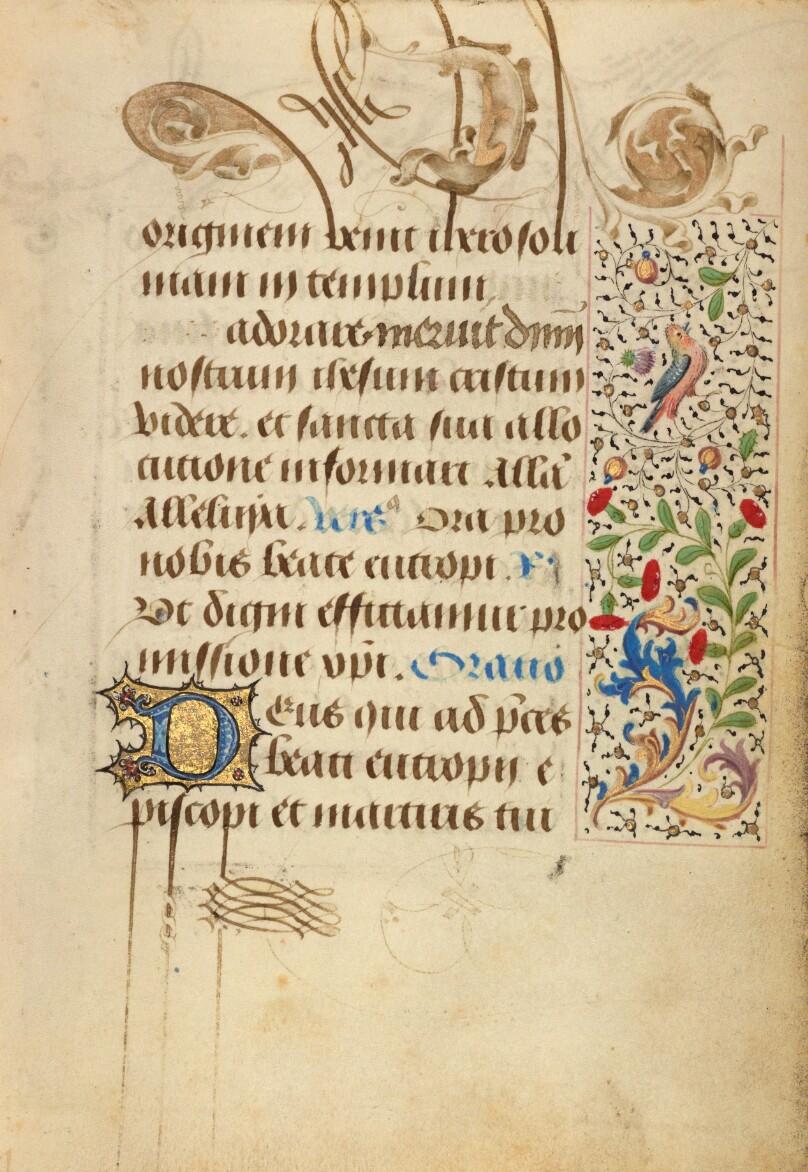 origniem venit iherosoli
mam in templum
adorare meruit dnm̄
nostrum ihesum cristum
videre. et sancta sua allo
cutione informari Alla͞
Alleluya. Vers Ora pro
nobis beate eutropi. R
Ut digni efficiamur pro
missione xpi. Oratio
Deus qui ad p̄ces
beati eutropii e
piscopi et martiris tui